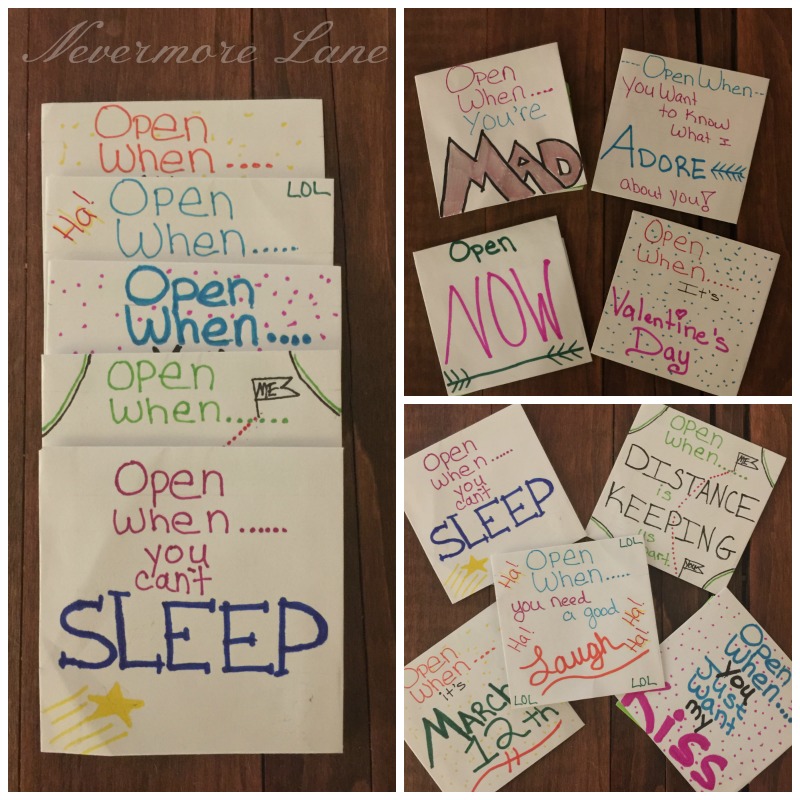 Nevermore Lane
Open
When ....
Open
When .....
LOL
Ha!
Open
When....
Open
When.......
ME
Open
When......
you
can't
SLEEP
Open
When....
you're
MAD
Open When
You Want
to Know
What I
ADORE
about you!
Open
NOW
Open
When......
It's
Valentine's
Day
Open
When......
you
can't
SLEEP
Open
When......
ME
DISTANCE
is
KEEPING
us
part.
Open
When.....
LOL
Ha!
you need
a good
Ha!
Ha!
Ha!
Laugh
LOL
Open
When
it's
MARCH
12th
LOL
Open
When....
you
Just
Want
my
Kiss